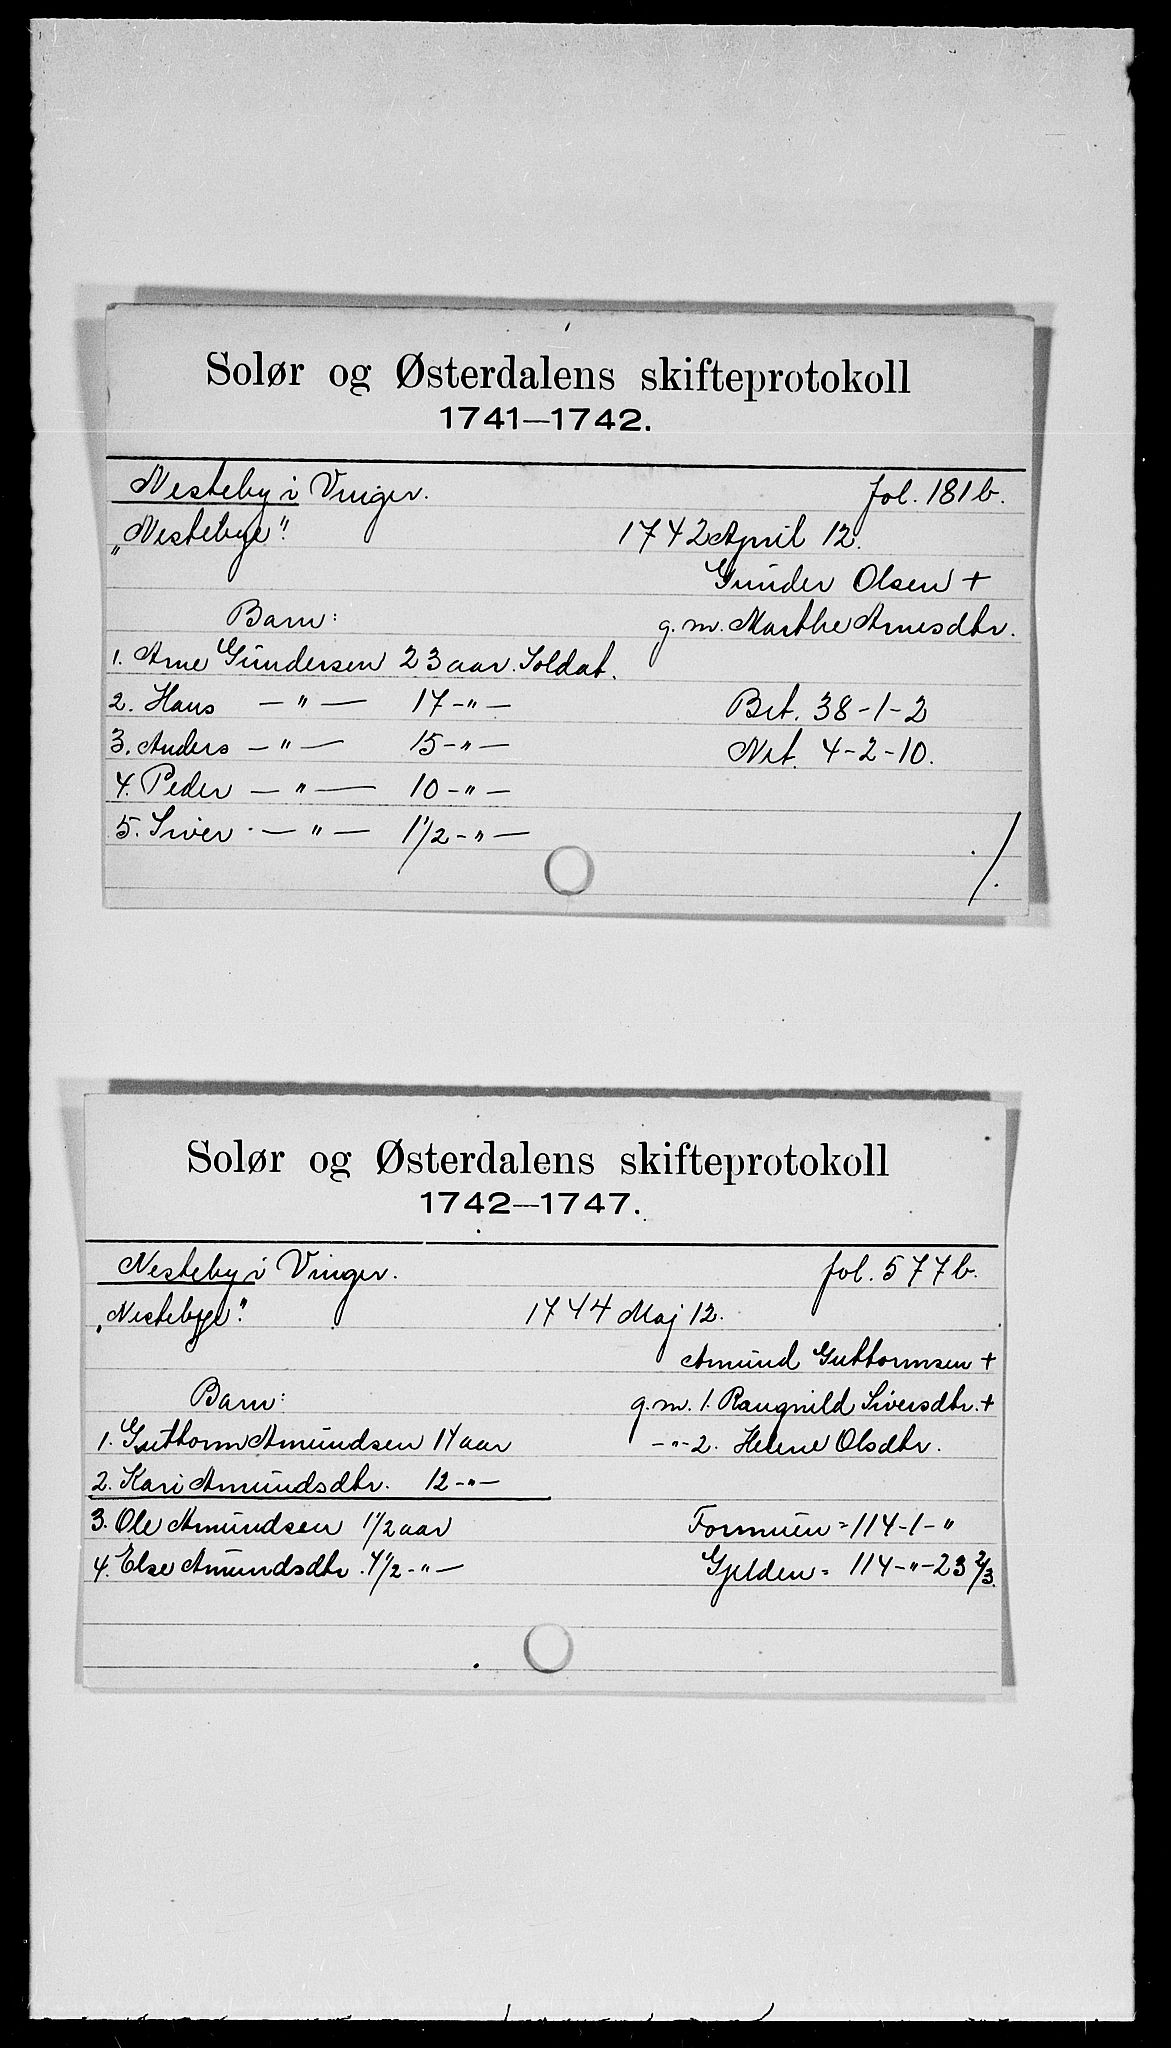 Solør og Østerdalens skifteprotokoll
1741—1742.
Nesteby i Vinger. fol. 181 b.
„Nestebye". 1742 April 12.
Gunder Olsen +
Barn: g.m. Marthe Arnesdtr.
1. Arne Gundersen 23 aar. Soldat.
2. Hans — " — 17 - " —
Brt. 38-1-2
3. Anders — " — 15 - " —
Net. 4-2-10.
4. Peder — " — 10 - " —
5. Siver — " — 1 1/2 - " —
./.
Solør og Østerdalens skifteprotokoll
1742—1747.
Nesteby i Vinger. fol. 577 b.
„Nestebye". 1744 Maj 12.
Amund Guttormsen +
Barn: g.m. 1. Rangnild Siversdtr. +
1. Guttorm Amundsen 14 aar - " - 2. Helene Olsdtr.
2. Kari Amundsdtr. 12 - " —
3. Ole Amundsen 1 1/2 aar Formuen = 114-1-"
4. Else Amundsdtr. 4 1/2 - " — Gjelden = 114-"-23 2/3.